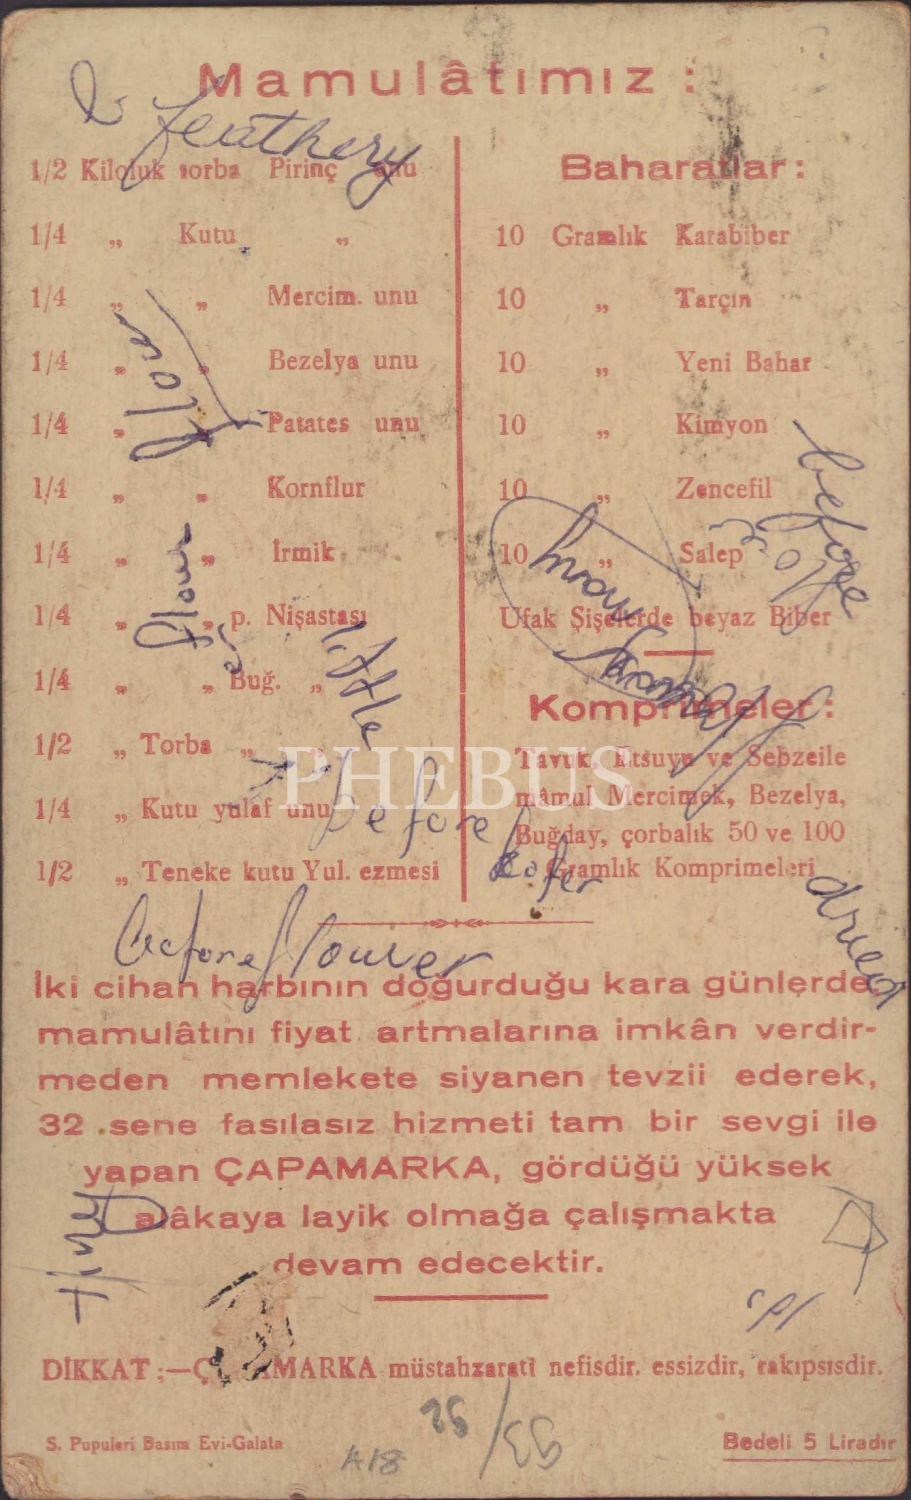 Mamulâtımız :
feathery
1/2 Kiloluk torba Pirinç unu
1/4 „ Kutu „
1/4 „ „ Mercim. unu
1/4 „ „ Bezelya unu
1/4 „ „ Patates unu
1/4 „ „ Kornflur
1/4 „ „ İrmik
1/4 „ „ p. Nişastası
1/4 „ „ Buğ. „
1/2 „ Torba „ „
1/4 „ Kutu yulaf unu
1/2 „ Teneke kutu Yul. ezmesi
flour
little
before
before flower
Baharatlar :
10 Gramlık Karabiber
10 „ Tarçın
10 „ Yeni Bahar
10 „ Kimyon
10 „ Zencefil
10 „ Salep
Ufak Şişelerde beyaz Biber
before
Komprimeler :
Tavuk, Etsuyu ve Sebzeile
mâmul Mercimek, Bezelya,
Buğday, çorbalık 50 ve 100
Gramlık Komprimeleri
dried
İki cihan harbının doğurduğu kara günlerde
mamulâtını fiyat artmalarına imkân verdir-
meden memlekete siyanen tevzii ederek,
32 sene fasılasız hizmeti tam bir sevgi ile
yapan ÇAPAMARKA, gördüğü yüksek
alâkaya layik olmağa çalışmakta
devam edecektir.
tiny
DİKKAT :—ÇAPAMARKA müstahzarati nefisdir. essizdir, rakıpsısdir.
S. Pupuleri Basım Evi-Galata
A18
Bedeli 5 Liradır
PHEBUS